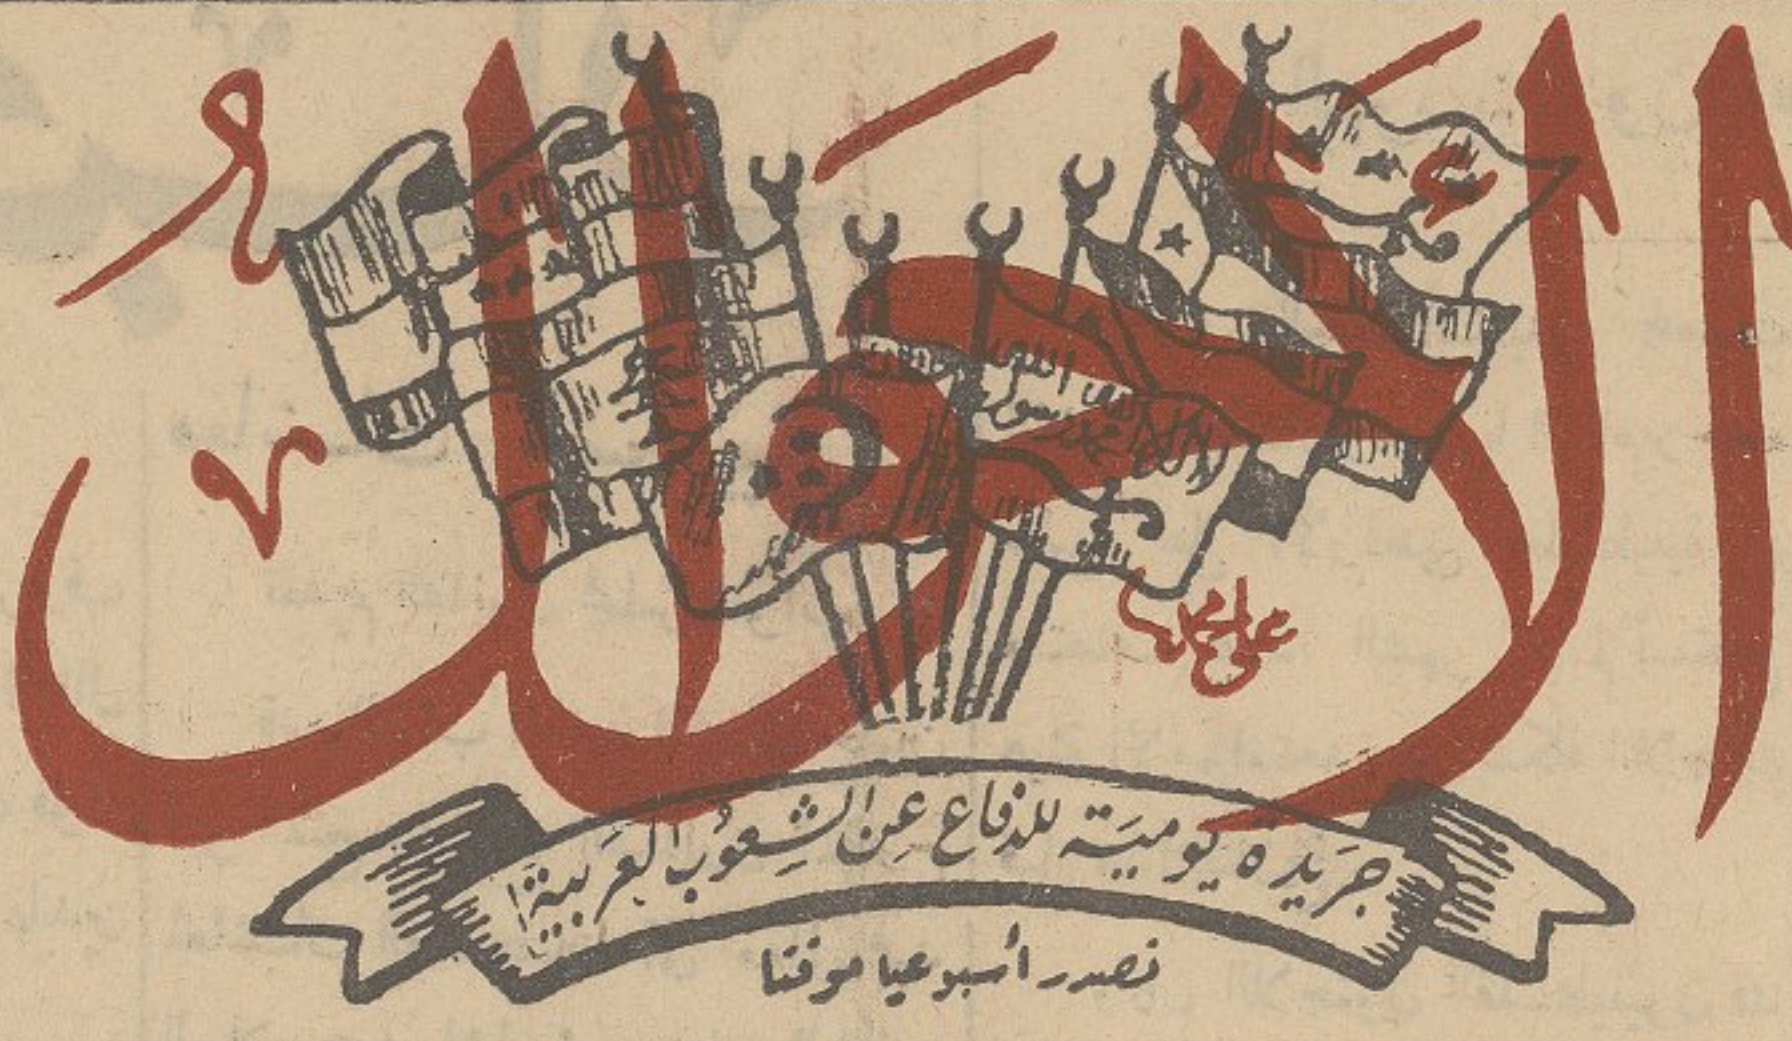 الأحوال
لا إله إلا الله محمد رسول الله
جريدة يومية للدفاع عن الشعوب العربية
تصدر أسبوعيا موقتا